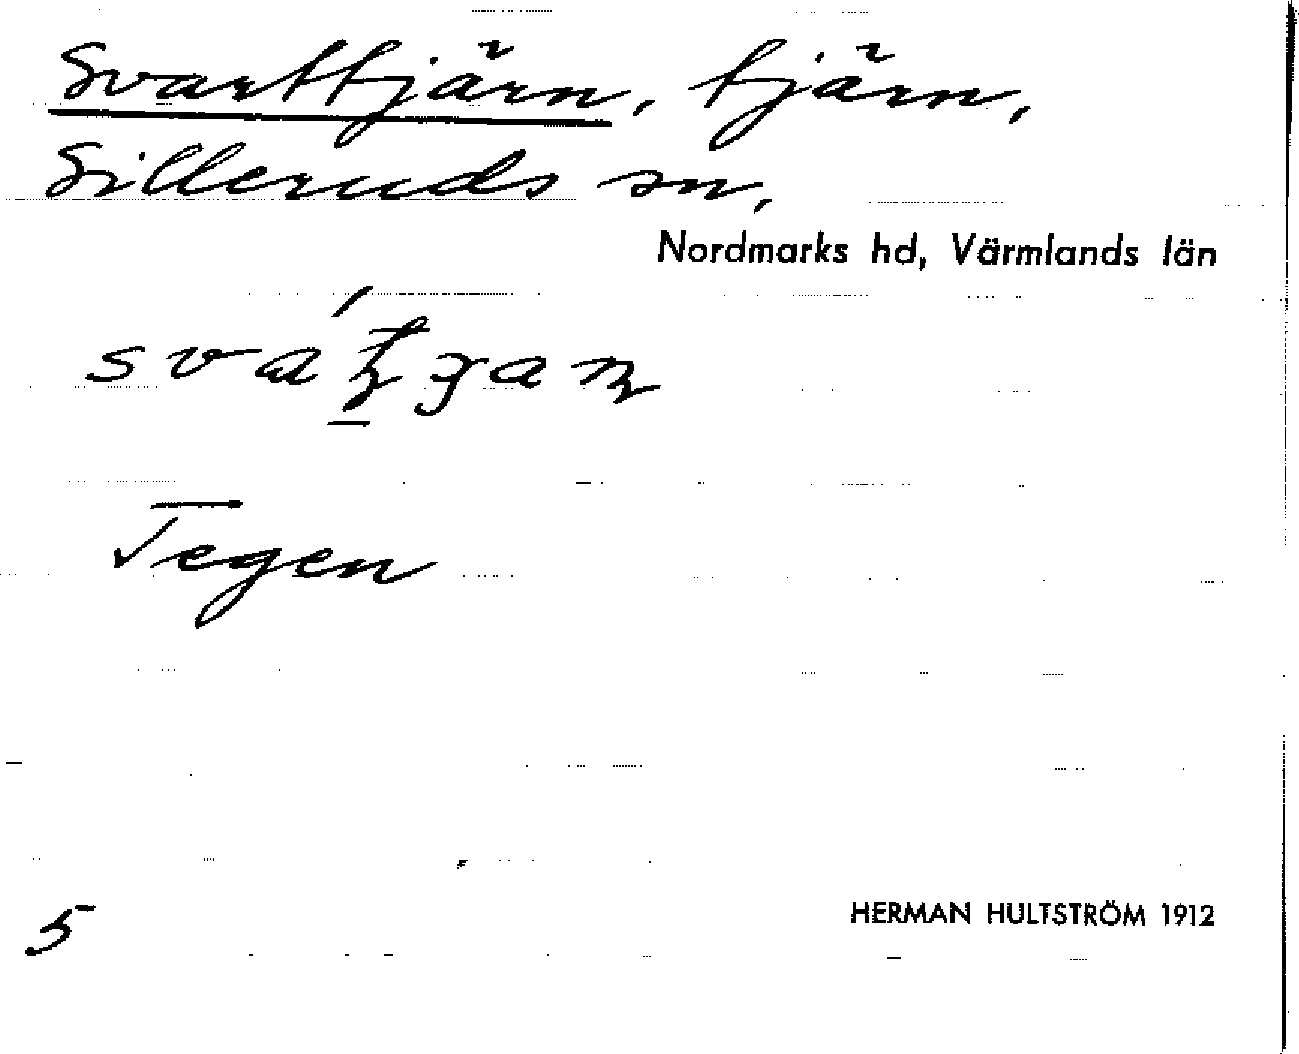 Svarttjärn, tjärn,
Silleruds sn,
Nordmarks hd, Värmlands län
Tegen
5
HERMAN HULTSTRÖM 1912